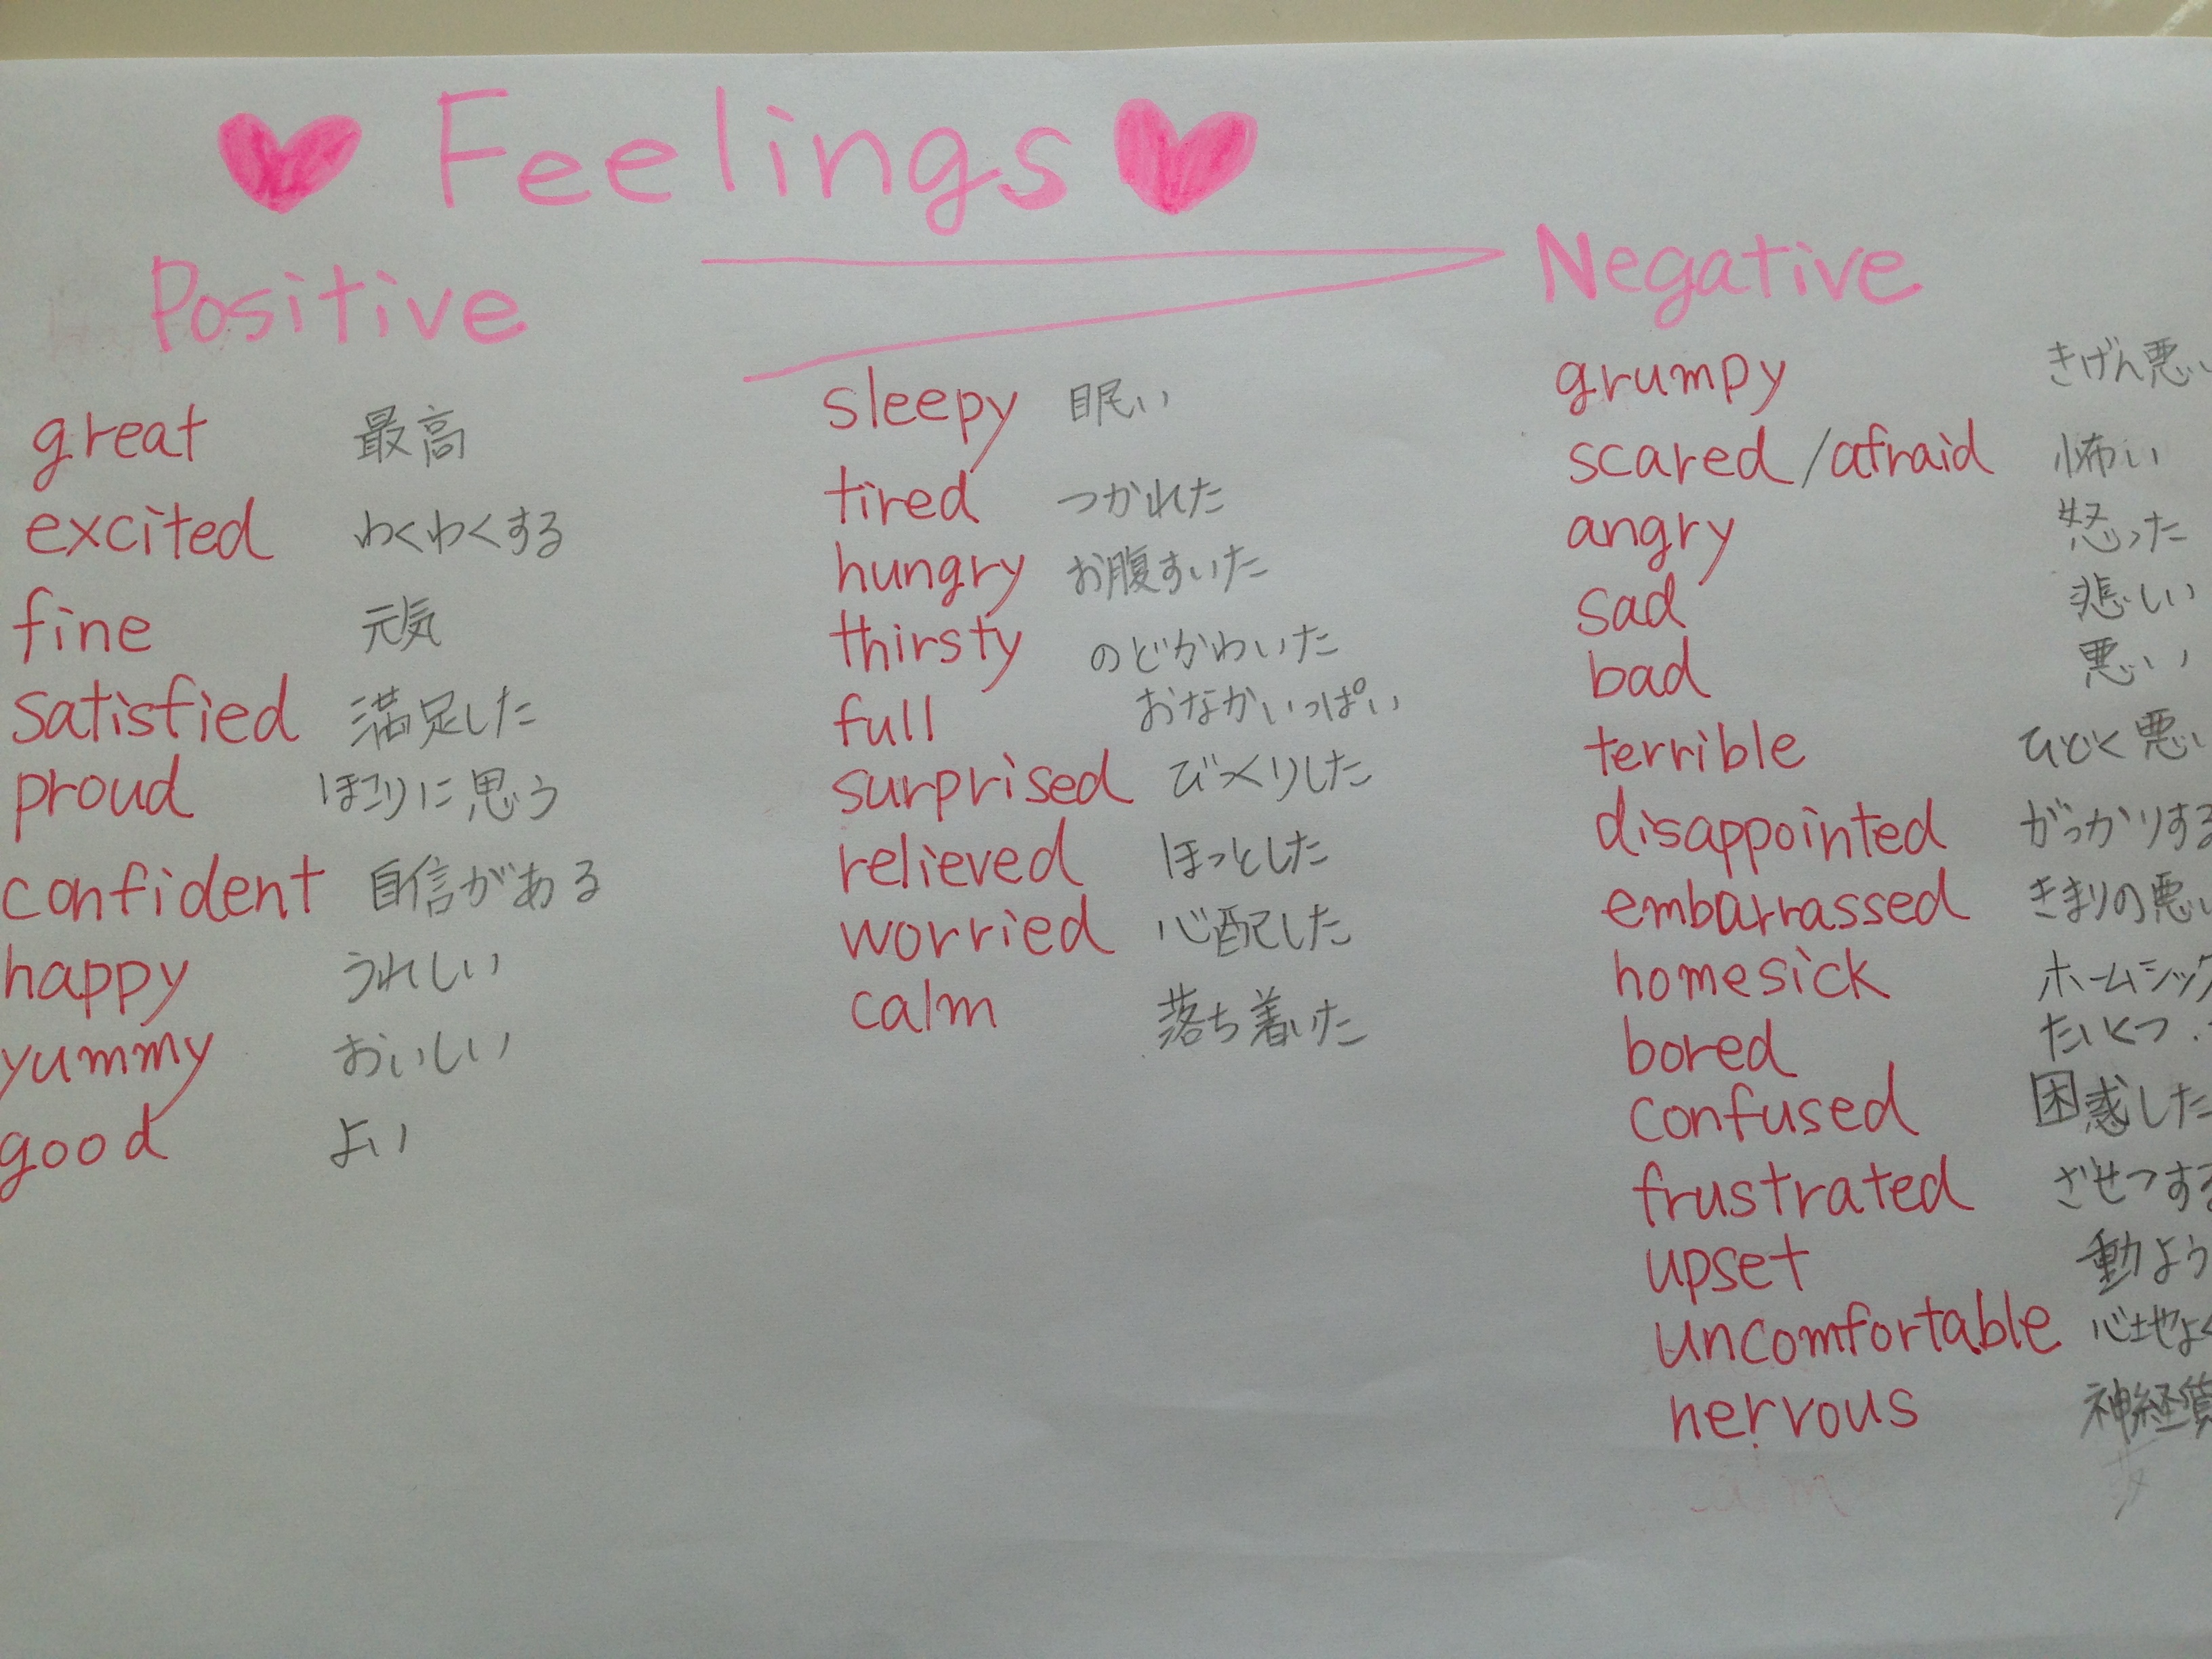 Feelings
Positive
great 最高
excited わくわくする
fine 元気
satisfied 満足した
proud ほこりに思う
confident 自信がある
happy うれしい
yummy おいしい
good よい
sleepy 眠い
tired つかれた
hungry お腹すいた
thirsty のどかわいた
full おなかいっぱい
surprised びっくりした
relieved ほっとした
worried 心配した
calm 落ち着いた
Negative
grumpy きげん悪い
scared/afraid 怖い
angry 怒った
sad 悲しい
bad 悪い
terrible ひどく悪い
disappointed がっかりする
embarrassed きまりの悪い
homesick ホームシック
bored たいくつ
confused 困惑した
frustrated ざせつする
upset 動よう
uncomfortable 心地よく
nervous 神経質